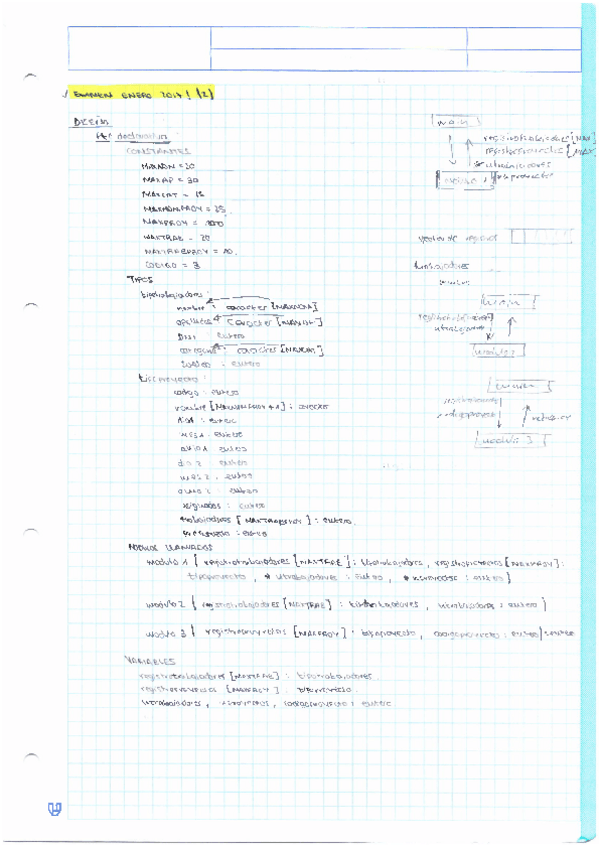 EXAMEN ENERO 2017! (2)
BEGIN
declaration
CONSTANTES
MAXNOM = 20
MAXAP = 30
MAXCAT = 15
MAXNOMPROY = 25
MAXPROY = 100
MAXTRAB = 20
MAXTRABPROY = 10
CODIGO = 3
TIPOS
tipotrabajadores :
nombre : caracter [MAXNOM]
apellidos : caracter
DNI : entero
categoria : caracter [MAXCAT]
sueldo : entero
tipoproyecto
codigo : entero
nombre [MAXNOMPROY+1] : caracter
dia1 : entero
mes1 : entero
anio1 : entero
dia2 : entero
mes2 : entero
anio2 : entero
: entero
trabajadores [MAXTRABPROY] : entero
presupuesto : entero
MODULOS LLAMADOS
modulo 1 ( registrotrabajadores [MAXTRAB] : tipotrabajadores, registroproyectos [MAXPROY] :
tipoproyecto, * ntrabajadores : entero, * nproyectos : entero )
modulo 2 ( registrotrabajadores [MAXTRAB] : tipotrabajadores, ntrabajadores : entero )
modulo 3 ( registroproyectos [MAXPROY] : tipoproyecto, codigoproyecto : entero ) : entero
VARIABLES
registrotrabajadores [MAXTRAB] : tipotrabajadores
registroproyectos [MAXPROY] : tipoproyecto
ntrabajadores, nproyectos, codigoproyecto : entero
main
registrotrabajadores [MAX]
registroproyectos [MAX]
* ntrabajadores
modulo 1
* nproyectos
vector de registros
trabajadores
main
registrotrabajadores
ntrabajadores
modulo 2
main
modulo 3